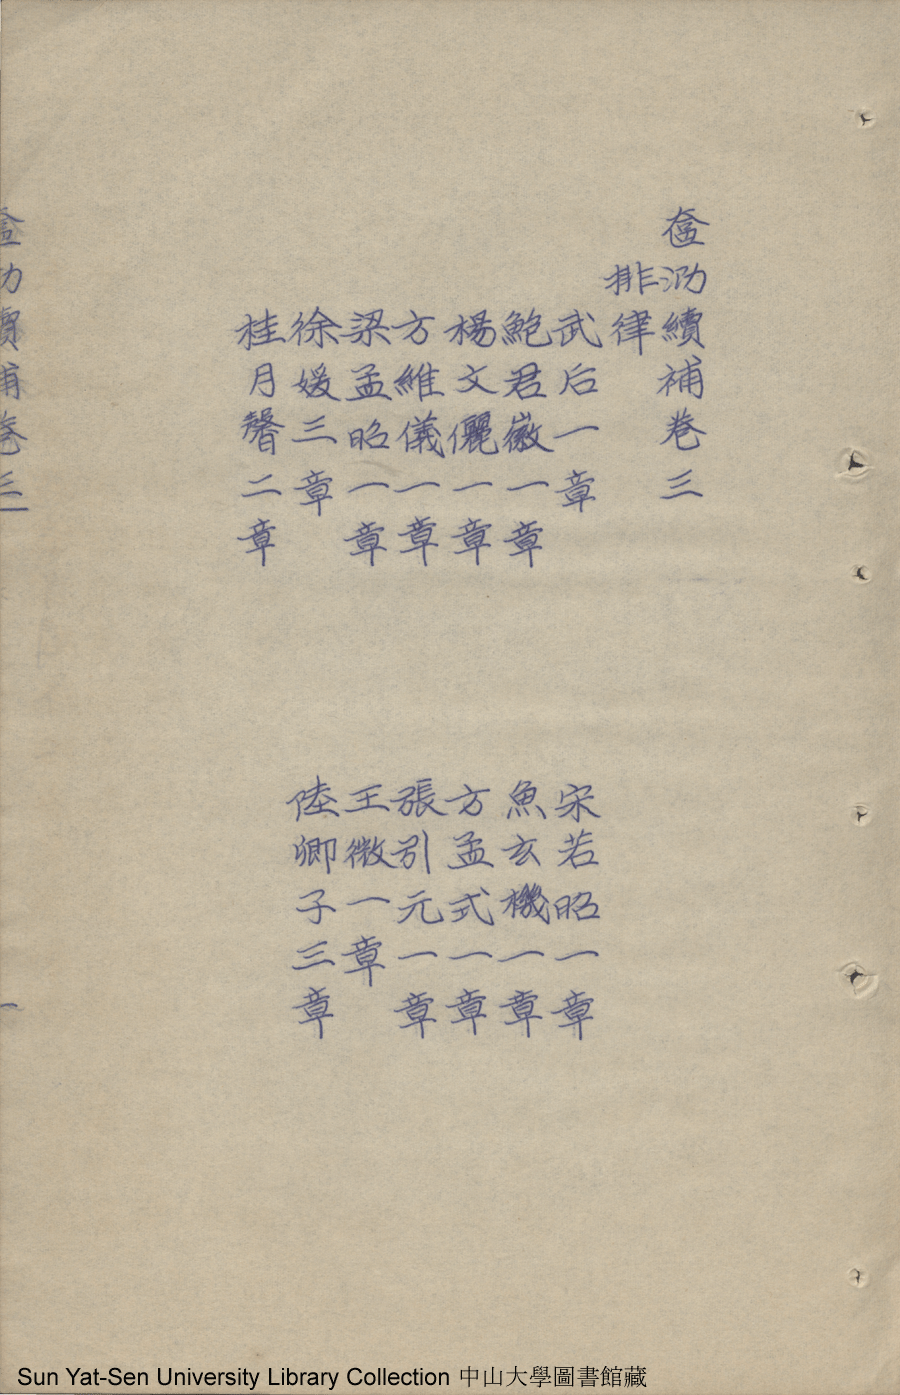 奩泐續補卷三
排律
武后一章
宋若昭一章
鮑君徽一章
魚玄機一章
楊文儷一章
方孟式一章
方維儀一章
張引元一章
梁孟昭一章
王微一章
徐媛三章
陸卿子三章
桂月馨二章
奩泐續補卷三
一
Sun Yat-Sen University Library Collection 中山大學圖書館藏